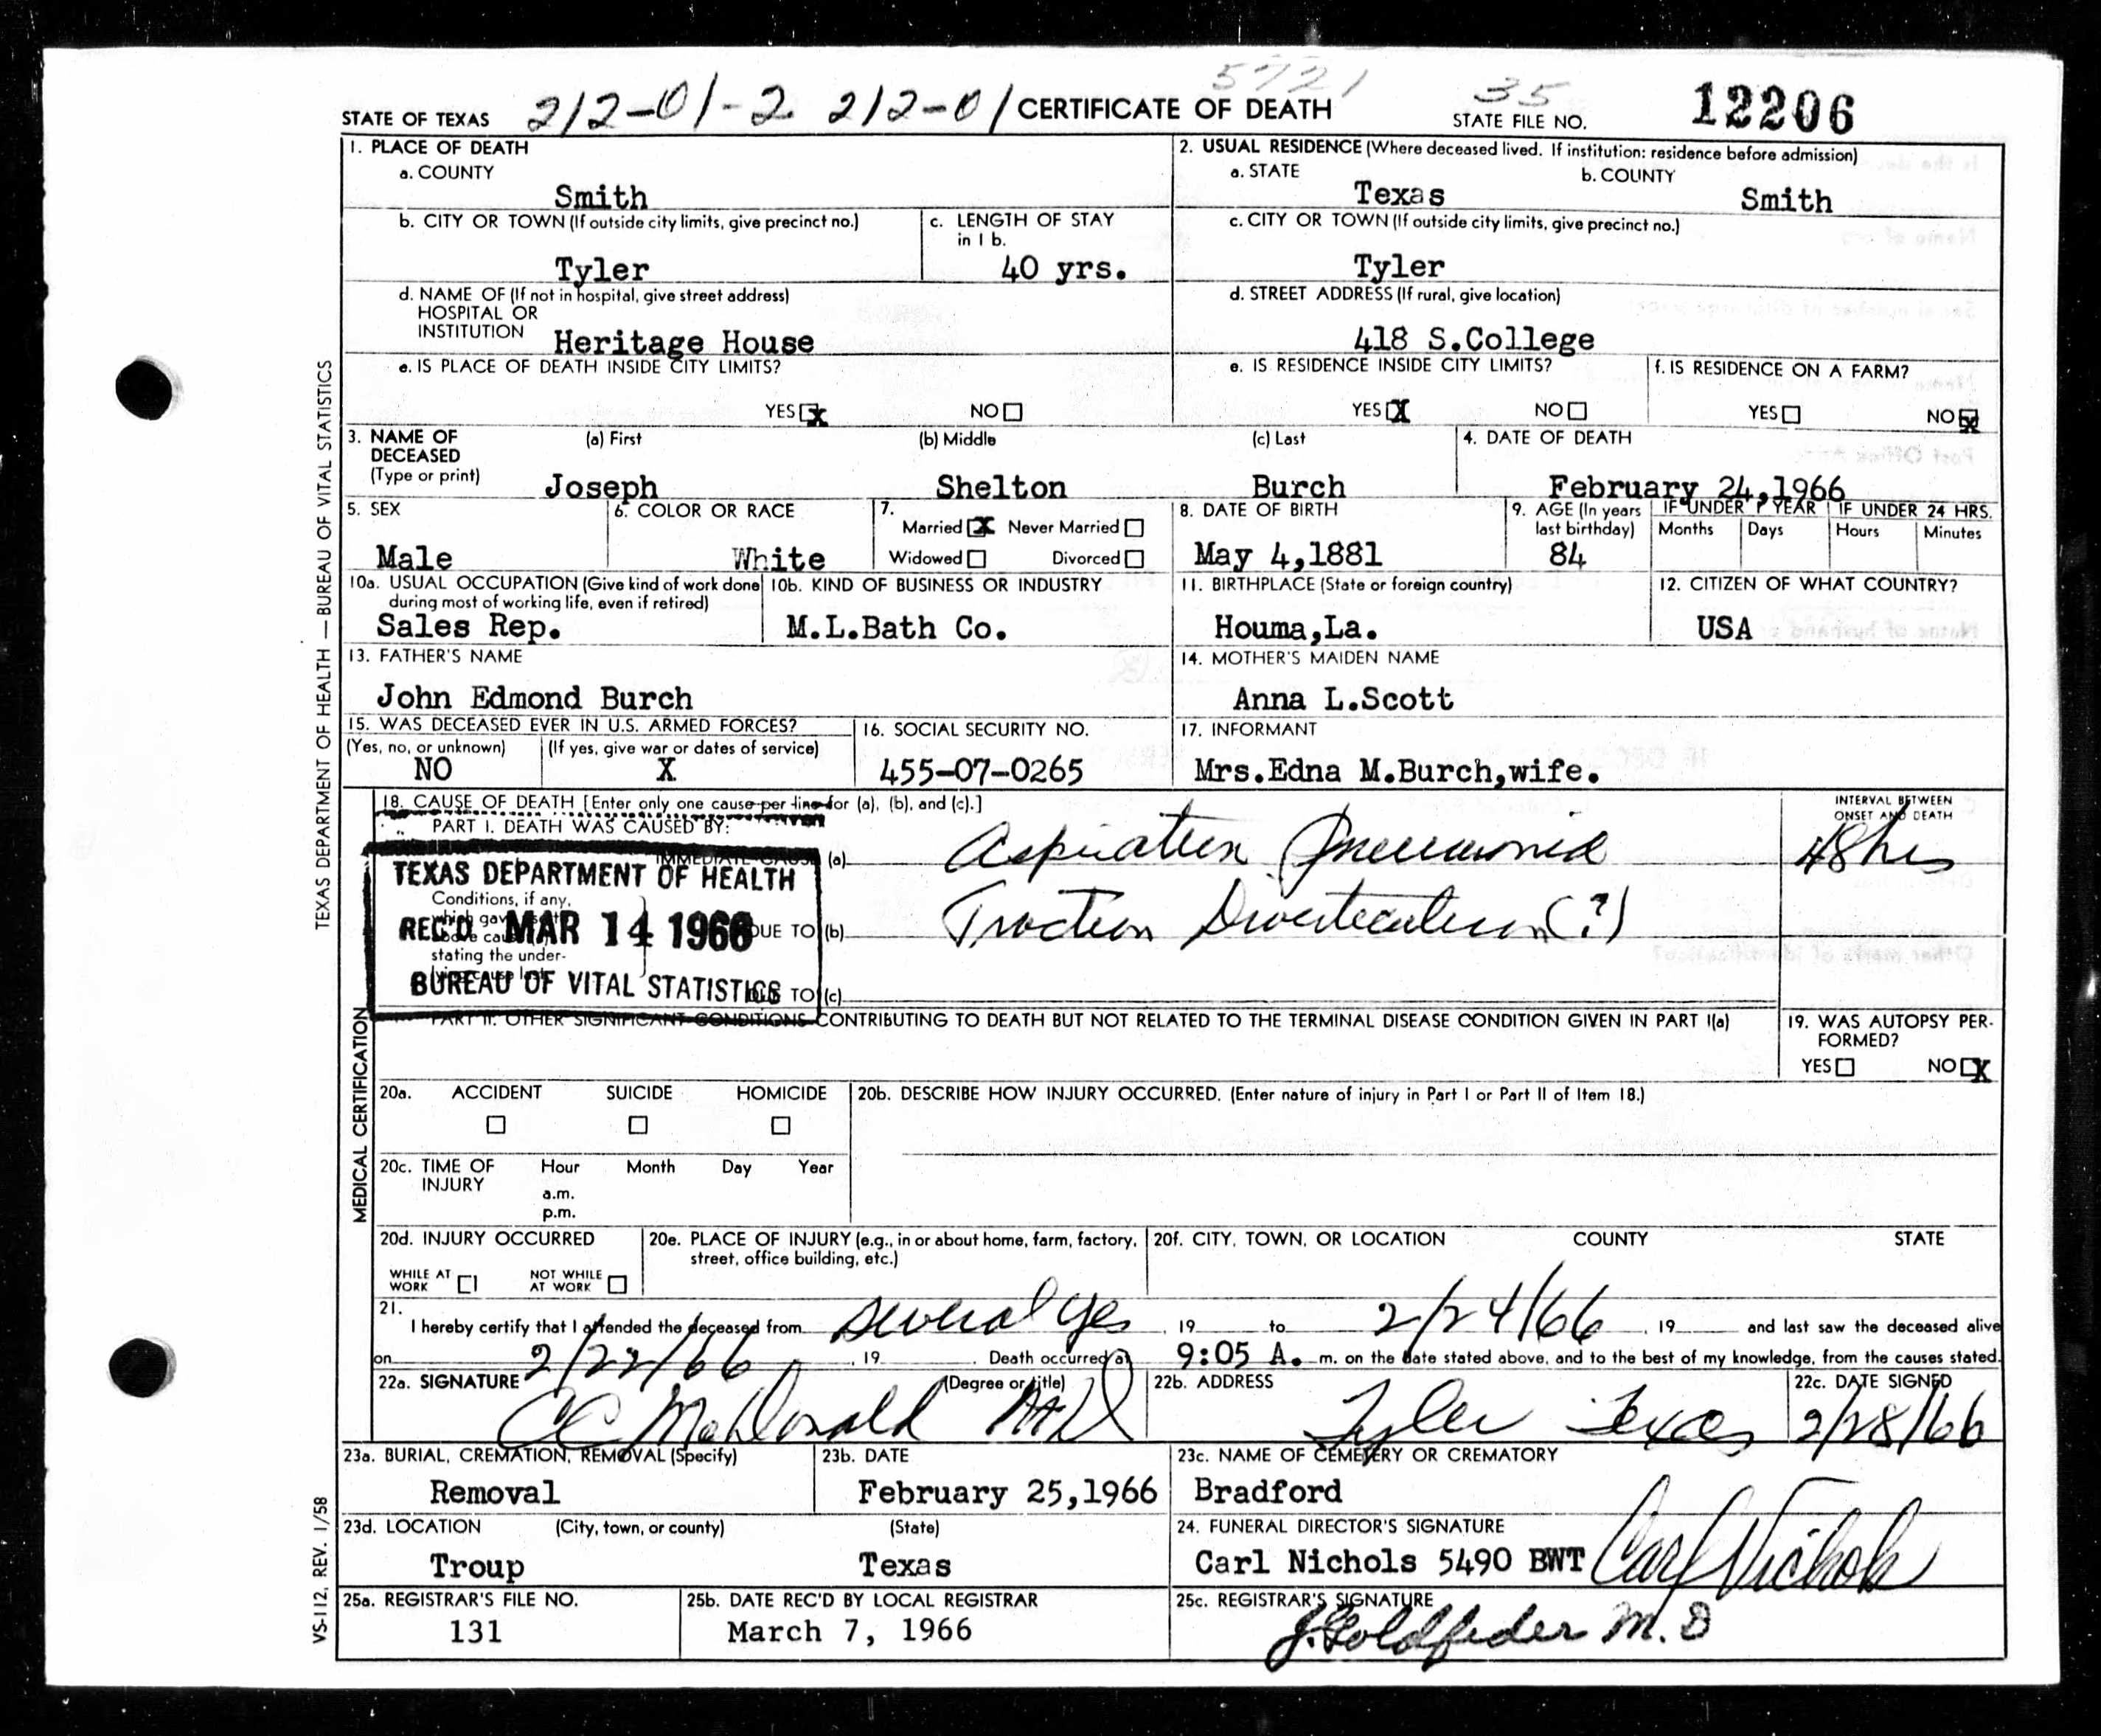 5721
STATE OF TEXAS 212-01-2 212-01 CERTIFICATE OF DEATH 35 STATE FILE NO. 12206
TEXAS DEPARTMENT OF HEALTH — BUREAU OF VITAL STATISTICS
1. PLACE OF DEATH
a. COUNTY
Smith
2. USUAL RESIDENCE (Where deceased lived. If institution: residence before admission)
a. STATE b. COUNTY
Texas Smith
b. CITY OR TOWN (If outside city limits, give precinct no.)
Tyler
c. LENGTH OF STAY
in 1 b.
40 yrs.
c. CITY OR TOWN (If outside city limits, give precinct no.)
Tyler
d. NAME OF (If not in hospital, give street address)
HOSPITAL OR
INSTITUTION Heritage House
d. STREET ADDRESS (If rural, give location)
418 S.College
e. IS PLACE OF DEATH INSIDE CITY LIMITS?
YES X NO
e. IS RESIDENCE INSIDE CITY LIMITS?
YES X NO
f. IS RESIDENCE ON A FARM?
YES NO X
3. NAME OF DECEASED (Type or print)
(a) First (b) Middle (c) Last
Joseph Shelton Burch
4. DATE OF DEATH
February 24,1966
5. SEX
Male
6. COLOR OR RACE
White
7.
Married X Never Married
Widowed Divorced
8. DATE OF BIRTH
May 4,1881
9. AGE (In years
last birthday)
84
IF UNDER 1 YEAR
Months Days
IF UNDER 24 HRS.
Hours Minutes
10a. USUAL OCCUPATION (Give kind of work done
during most of working life, even if retired)
Sales Rep.
10b. KIND OF BUSINESS OR INDUSTRY
M.L.Bath Co.
11. BIRTHPLACE (State or foreign country)
Houma,La.
12. CITIZEN OF WHAT COUNTRY?
USA
13. FATHER'S NAME
John Edmond Burch
14. MOTHER'S MAIDEN NAME
Anna L.Scott
15. WAS DECEASED EVER IN U.S. ARMED FORCES?
(Yes, no, or unknown) (If yes, give war or dates of service)
NO X
16. SOCIAL SECURITY NO.
455-07-0265
17. INFORMANT
Mrs.Edna M.Burch,wife.
MEDICAL CERTIFICATION
18. CAUSE OF DEATH [Enter only one cause per line for (a), (b), and (c).]
PART I. DEATH WAS CAUSED BY:
INTERVAL BETWEEN
ONSET AND DEATH
IMMEDIATE CAUSE (a) Aspiration Pneumonia 48 hrs
TEXAS DEPARTMENT OF HEALTH
REC'D MAR 14 1966
BUREAU OF VITAL STATISTICS
Conditions, if any,
which gave
stating the under-
lying cause last.
DUE TO (b) Traction Diverticulum (?)
DUE TO (c)
PART II. OTHER SIGNIFICANT CONDITIONS CONTRIBUTING TO DEATH BUT NOT RELATED TO THE TERMINAL DISEASE CONDITION GIVEN IN PART I(a)
19. WAS AUTOPSY PER-
FORMED?
YES NO X
20a. ACCIDENT SUICIDE HOMICIDE
20b. DESCRIBE HOW INJURY OCCURRED. (Enter nature of injury in Part I or Part II of Item 18.)
20c. TIME OF INJURY
Hour Month Day Year
a.m.
p.m.
20d. INJURY OCCURRED
WHILE AT WORK NOT WHILE AT WORK
20e. PLACE OF INJURY (e.g., in or about home, farm, factory,
street, office building, etc.)
20f. CITY, TOWN, OR LOCATION COUNTY STATE
21.
I hereby certify that I attended the deceased from several yrs , 19 to 2/24/66 , 19 and last saw the deceased alive
on 2/22/66 , 19 . Death occurred at 9:05 A. m. on the date stated above, and to the best of my knowledge, from the causes stated.
22a. SIGNATURE (Degree or title)
CC McDonald MD
22b. ADDRESS
Tyler Texas
22c. DATE SIGNED
2/28/66
23a. BURIAL, CREMATION, REMOVAL (Specify)
Removal
23b. DATE
February 25,1966
23c. NAME OF CEMETERY OR CREMATORY
Bradford
23d. LOCATION (City, town, or county) (State)
Troup Texas
24. FUNERAL DIRECTOR'S SIGNATURE
Carl Nichols 5490 BWT Carl Nichols
25a. REGISTRAR'S FILE NO.
131
25b. DATE REC'D BY LOCAL REGISTRAR
March 7, 1966
25c. REGISTRAR'S SIGNATURE
J. Goldfeder M.D
VS-112, REV. 1/58